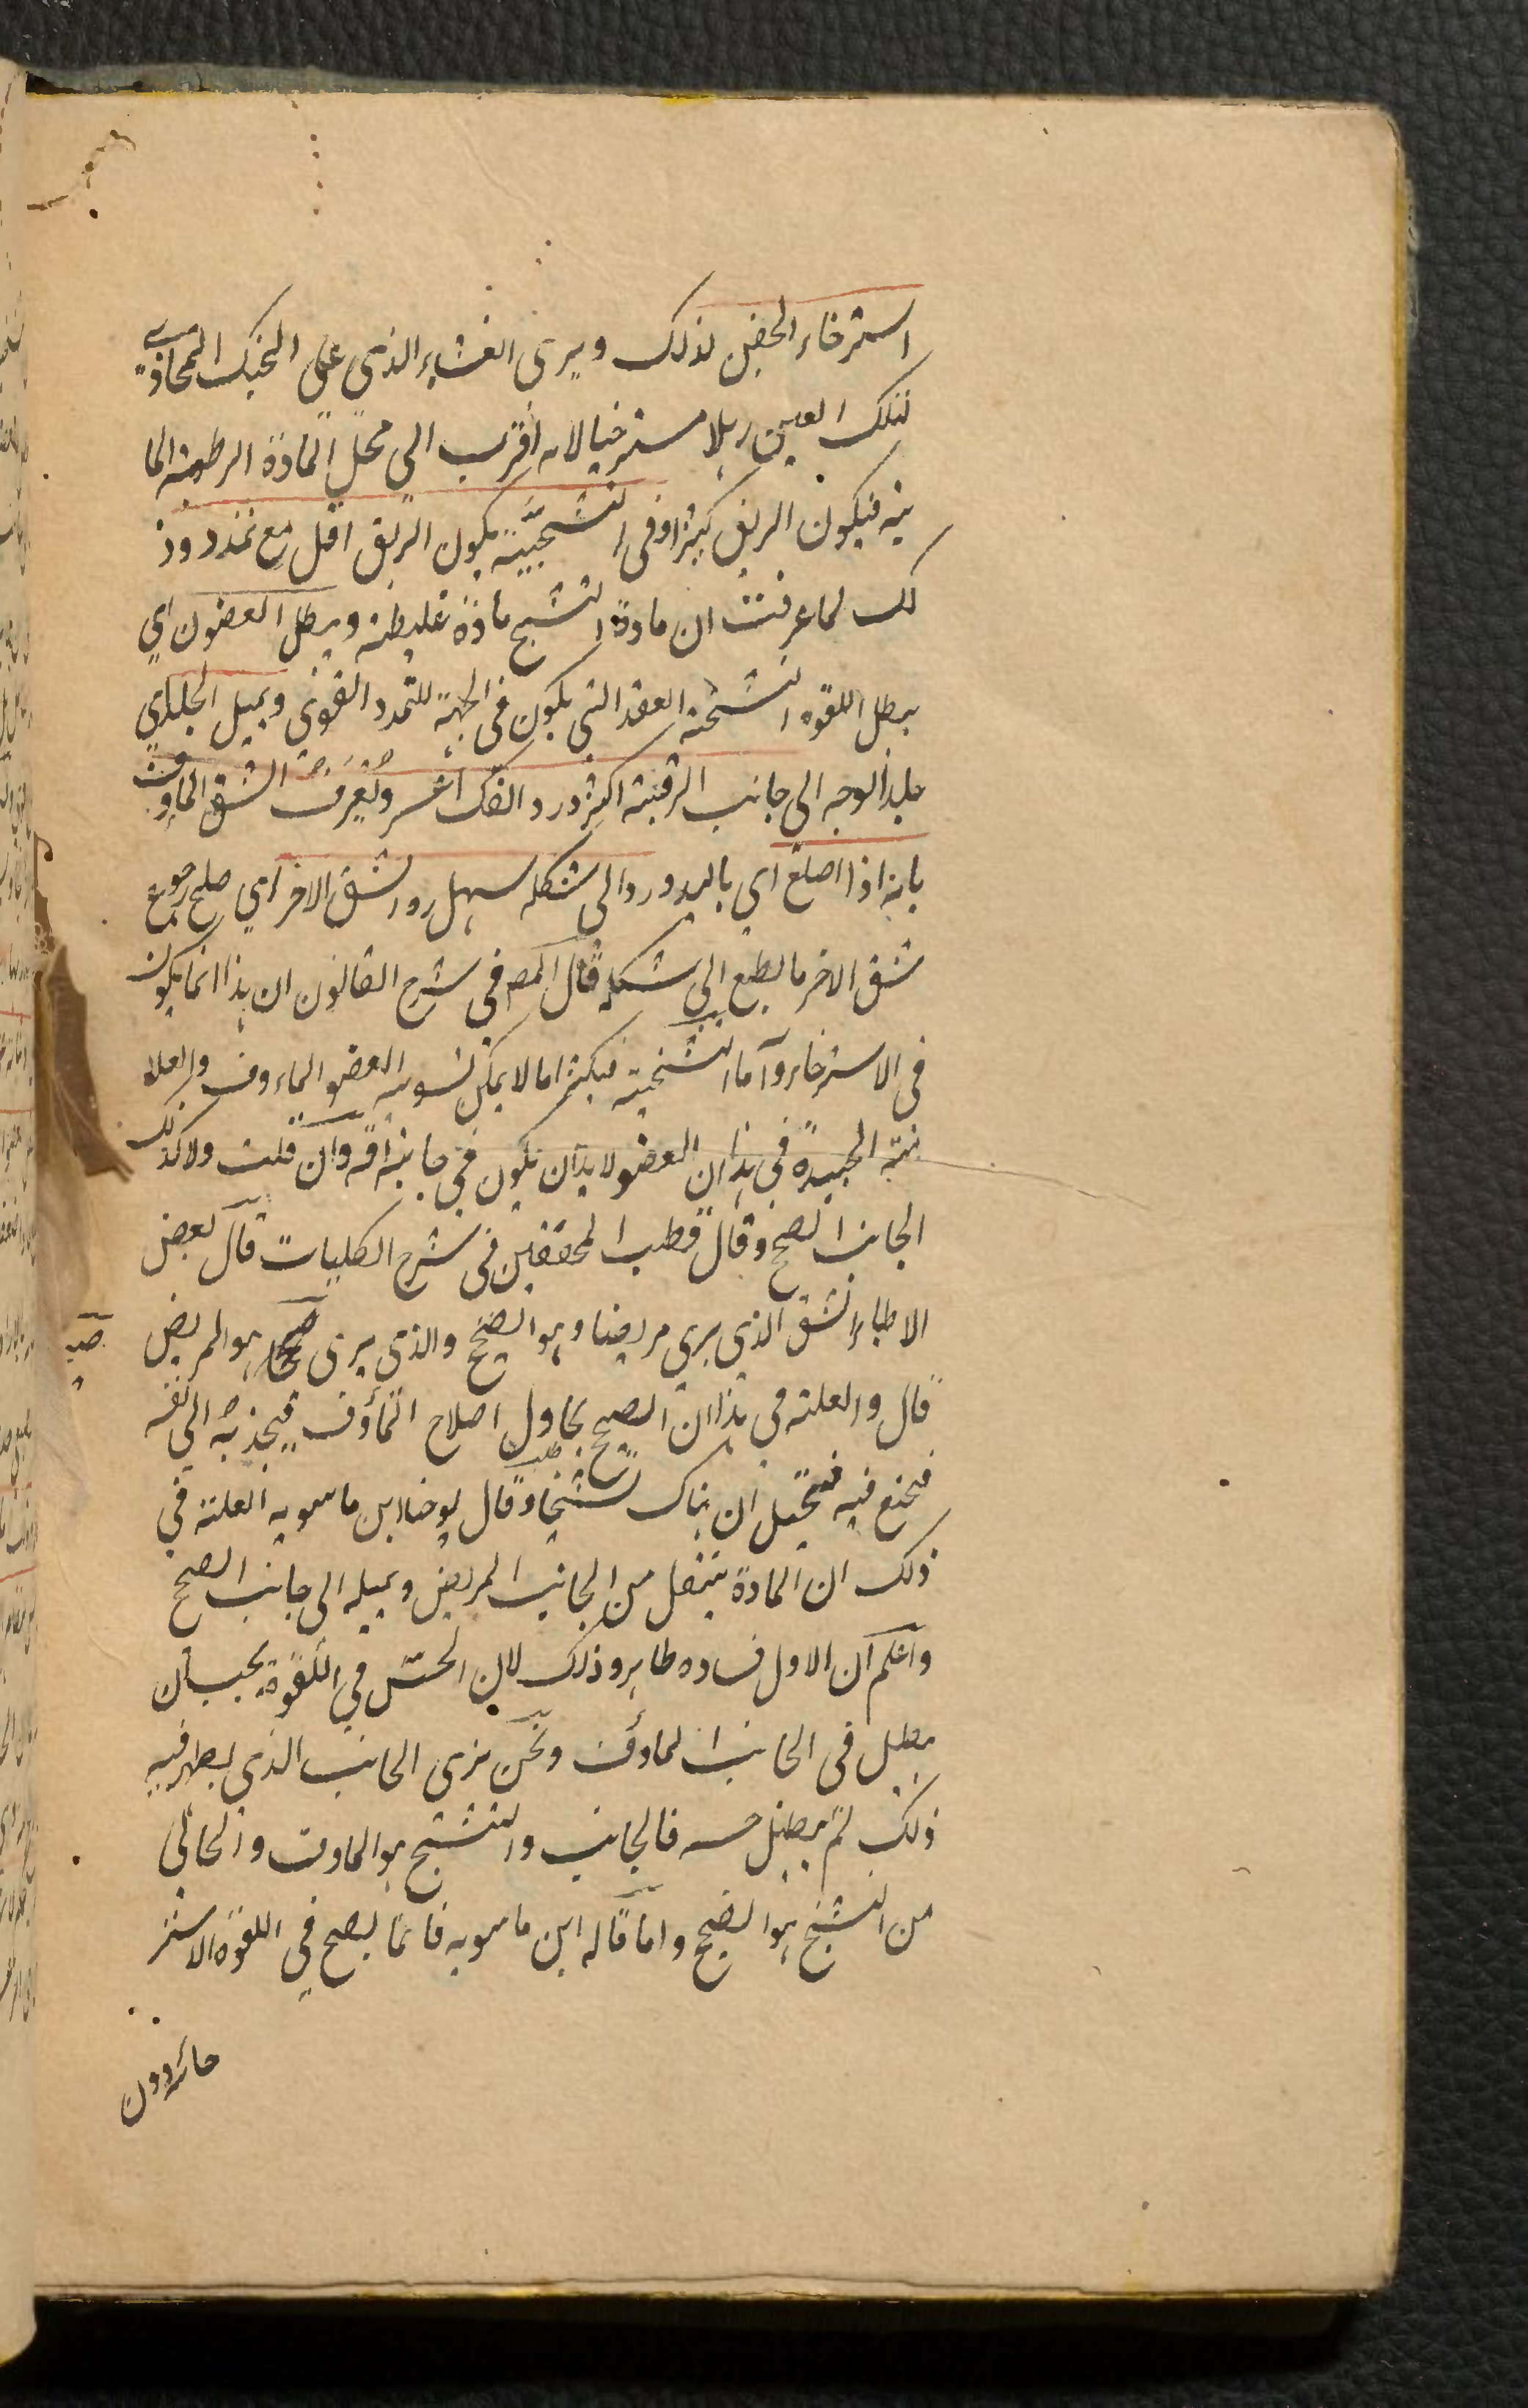 استرخاء الجفن لذلك ويرى الغشاء الذى على الحنك المحاذى
لتلك العين رهلا مسترخيا لانه اقرب الى محل المادة الرطوبة الما
ئية فيكون الريق كثيرا وفى التشنجية يكون الريق اقل مع تمدد وذ
لك لما عرفت ان مادة التشنج مادة غليظة ويبطل الغضون اى
يبطل اللقوة التشنجية العقد التى يكون فى الجبهة للتمدد القوى ويميل الجلد اى
جلد الوجه الى جانب الرقبة اكثر ورد الفك اعسر ويعرف الشق الماوف
بانه اذا اصلح اى باليد ورد الى شكله سهل رد الشق الاخر اى صلح رجوع
شق الاخر بالطبع الى شكله قال المص فى شرح القانون ان هذا انما يكون
فى الاسترخاء واما التشنجية فكثيرا ما لا يمكن تسوية العضو الماءوف والعلا
مة الجيدة فى هذا ان العضو لا بد ان يكون فى جانبه افة وان قلت ولا كذلك
الجانب الصحيح وقال قطب المحققين فى شرح الكليات قال بعض
الاطباء الشق الذى يرى مريضا وهو الصحيح والذى يرى صحيحا هو المريض
قال والعلة فى هذا ان الصحيح يحاول اصلاح المأوف فيجذبه الى نفسه
فيتخيل ان هناك تشنجا وقال يوحنا ابن ماسويه العلة فى
ذلك ان المادة ينتقل من الجانب المريض ويميله الى جانب الصحيح
واعلم ان الاول فساده ظاهر وذلك لان الحس فى اللقوة يجب ان
يبطل فى الجانب الماوف ونحن نرى الجانب الذى يظهر فيه
ذلك لم يبطل حسه فالجانب والتشنج هو الماوف والخالى
من التشنج هو الصحيح واما قاله ابن ماسويه فانما يصح فى اللقوة الاستر
خائية دون